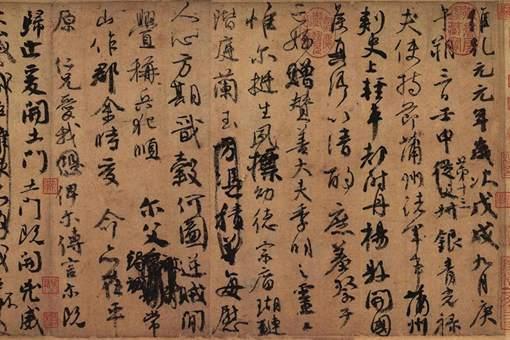 維乾元元年歲次戊戌九月庚
午朔三日壬申第十三叔銀青光祿
夫使持節蒲州諸軍事蒲州
刺史上輕車都尉丹楊縣開國
侯真卿以清酌庶羞祭于
亡姪贈贊善大夫季明之靈曰
惟爾挺生夙標幼德宗廟瑚璉
階庭蘭玉方憑積善每慰
人心方期戩穀何圖逆賊間
釁稱兵犯順爾父竭誠常
山作郡余時受命亦在平
原仁兄愛我恐俾爾傳言爾既
歸止爰開土門土門既開兇威